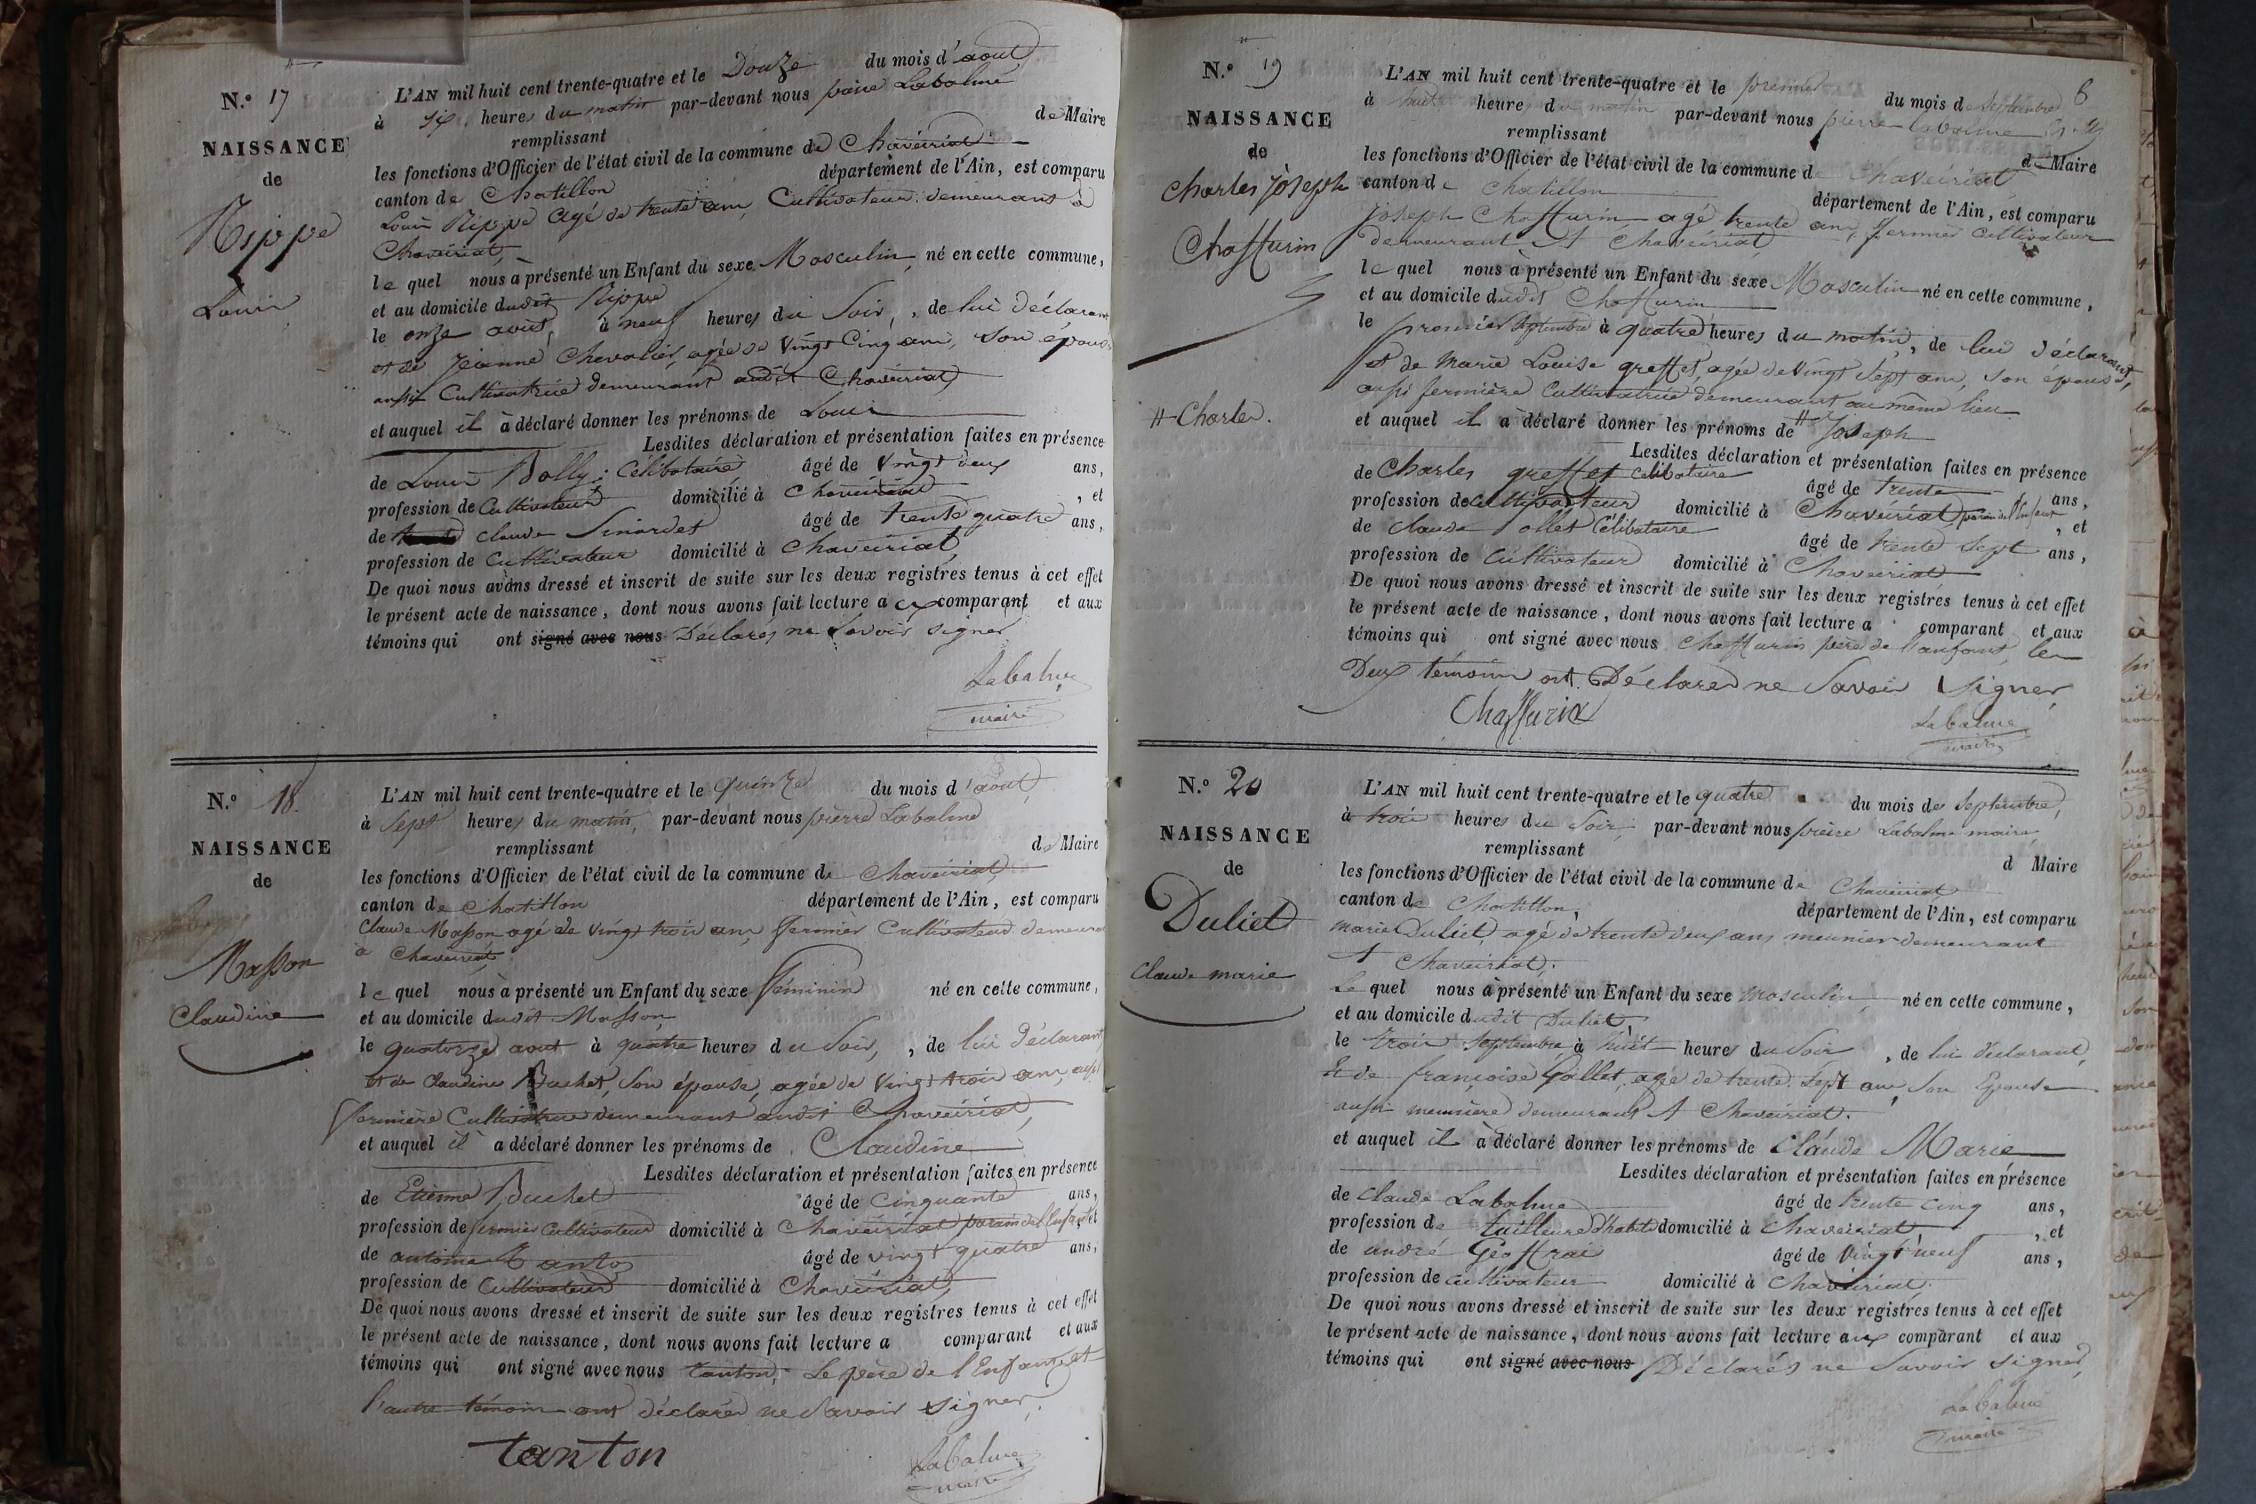 N.° 17
NAISSANCE
de
Nippe
Louis
L'AN mil huit cent trente-quatre et le Douze du mois d'aout
à six heures du matin par-devant nous pierre Labalme
remplissant de Maire
les fonctions d'Officier de l'état civil de la commune de Chaveiriat
canton de Chatillon département de l'Ain, est comparu
Louis Nippe agé de trente ans, Cultivateur demeurant à
Chaveiriat,
le quel nous à présenté un Enfant du sexe Masculin né en cette commune,
et au domicile dudit Nippe
le onze aout, à neuf heures du Soir, de lui déclarant
et de Jeanne Chevalier, agée de vingt Cinq ans, Son épouse
aussi Cultivatrice demeurant audit Chaveiriat,
et auquel il à déclaré donner les prénoms de Louis
Lesdites déclaration et présentation faites en présence
de Louis Bolly, Célibataire âgé de vingt deux ans,
profession de Cultivateur domicilié à Chaveiriat, et
de claude Sinardet âgé de trente quatre ans,
profession de Cultivateur domicilié à Chaveiriat,
De quoi nous avons dressé et inscrit de suite sur les deux registres tenus à cet effet
le présent acte de naissance, dont nous avons fait lecture a comparant et aux
témoins qui ont signé avec nous Déclarés ne Savoir signer
Labalme
maire
N.° 18
NAISSANCE
de
Masson
Claudine
L'AN mil huit cent trente-quatre et le quinze du mois d'aout,
à Sept heures du matin, par-devant nous pierre Labalme
remplissant de Maire
les fonctions d'Officier de l'état civil de la commune de Chaveiriat,
canton de Chatillon département de l'Ain, est comparu
Claude Masson agé de vingt trois ans, fermier Cultivateur demeurant
a Chaveiriat,
le quel nous à présenté un Enfant du sexe féminin né en cette commune,
et au domicile dudit Masson
le quatorze aout à quatre heures du Soir, , de lui déclarant,
et de Claudine Buchet, Son épouse, agée de vingt trois ans, aussi
fermière Cultivatrice demeurant audit Chaveiriat,
et auquel il a déclaré donner les prénoms de Claudine
Lesdites déclaration et présentation faites en présence
de Etienne Buchet âgé de cinquante ans,
profession de fermier Cultivateur domicilié à Chaveiriat parain de l'Enfant et
de antoine Tanton âgé de vingt quatre ans,
profession de Cultivateur domicilié à Chaveiriat,
De quoi nous avons dressé et inscrit de suite sur les deux registres tenus à cet effet
le présent acte de naissance, dont nous avons fait lecture a comparant et aux
témoins qui ont signé avec nous tanton, Le père de l'Enfant et
l'autre témoin ont déclaré ne Savoir signer,
tanton
Labalme
maire
N.° 19
NAISSANCE
de
Charles Joseph
Chaffurin
H Charles.
6
L'AN mil huit cent trente-quatre et le premier du mois de Septembre
à huit heures du matin par-devant nous pierre labalme
remplissant de Maire
les fonctions d'Officier de l'état civil de la commune de Chaveiriat
canton de Chatillon département de l'Ain, est comparu
Joseph Chaffurin agé trente ans, fermier Cultivateur
demeurant A Chaveiriat
le quel nous à présenté un Enfant du sexe Masculin né en cette commune,
et au domicile dudit Chaffurin
le premier Septembre à quatre heures du matin, de lui déclarant,
et de Marie Louise greffet, agée de Vingt Sept ans, Son épouse,
aussi fermière Cultivatrice demeurant au même lieu
et auquel il a déclaré donner les prénoms de H Joseph
Lesdites déclaration et présentation faites en présence
de Charles greffet Celibataire âgé de trente ans,
profession de Cultivateur domicilié à Chaveiriat, parain de l'Enfant, et
de Claude Pollet Célibataire âgé de trente Sept ans,
profession de Cultivateur domicilié à Chaveiriat
De quoi nous avons dressé et inscrit de suite sur les deux registres tenus à cet effet
le présent acte de naissance, dont nous avons fait lecture a comparant et aux
témoins qui ont signé avec nous Chaffurin père de l'anfant, les
Deux témoins ont Déclarés ne Savoir Signer,
Chaffurin
Labalme
maire
N.° 20
NAISSANCE
de
Duliet
Claude marie
L'AN mil huit cent trente-quatre et le quatre du mois de Septembre,
à trois heures du Soir, par-devant nous pierre Labalme maire
remplissant d Maire
les fonctions d'Officier de l'état civil de la commune de Chaveiriat
canton de Chatillon, département de l'Ain, est comparu
marie Duliet, agé de trente deux ans meunier demeurant
A Chaveiriat.
Le quel nous à présenté un Enfant du sexe masculin, né en cette commune,
et au domicile dudit Duliet,
le trois Septembre à huit heures du Soir , de lui déclarant,
Et de françoise Gallet, agée de trente Sept ans, Son Epouse
aussi meunière demeurant A Chaveiriat.
et auquel il à déclaré donner les prénoms de Claude Marie
Lesdites déclaration et présentation faites en présence
de Claude Labalme âgé de trente cinq ans,
profession de tailleur d'habit domicilié à Chaveiriat , et
de andré Geoffrai âgé de Vingt neuf ans,
profession de Cultivateur domicilié à Chaveiriat.
De quoi nous avons dressé et inscrit de suite sur les deux registres tenus à cet effet
le présent acte de naissance, dont nous avons fait lecture aux comparant et aux
témoins qui ont signé avec nous Déclarés ne Savoir signer,
Labalme
maire